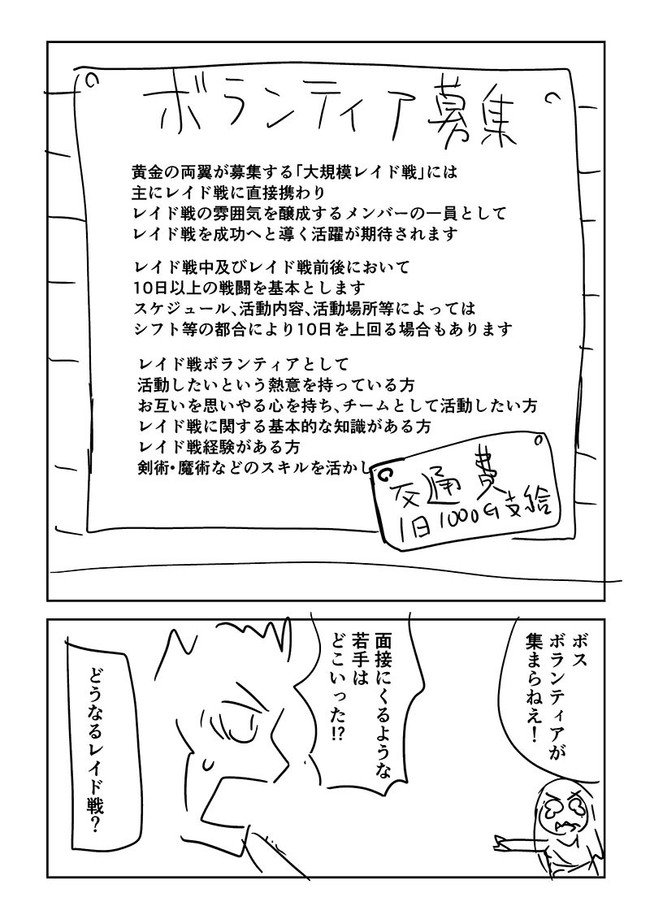 ボランティア募集
黄金の両翼が募集する「大規模レイド戦」には
主にレイド戦に直接携わり
レイド戦の雰囲気を醸成するメンバーの一員として
レイド戦を成功へと導く活躍が期待されます
レイド戦中及びレイド戦前後において
10日以上の戦闘を基本とします
スケジュール、活動内容、活動場所等によっては
シフト等の都合により10日を上回る場合もあります
レイド戦ボランティアとして
活動したいという熱意を持っている方
お互いを思いやる心を持ち、チームとして活動したい方
レイド戦に関する基本的な知識がある方
レイド戦経験がある方
剣術・魔術などのスキルを活かし
交通費
1日1000G支給
ボス
ボランティアが
集まらねえ!
面接にくるような
若手は
どこいった!?
どうなるレイド戦?